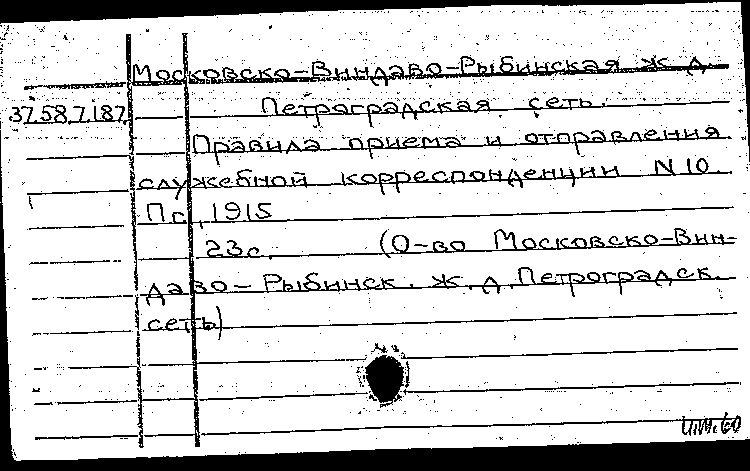 Московско-Виндаво-Рыбинская ж.д.
37.58.7.187 Петроградская сеть.
Правила приема и отправления
служебной корреспонденции N 10.
Пг., 1915
23с. (О-во Московско-Вин-
даво-Рыбинск. ж.д. Петроградск.
сеть)